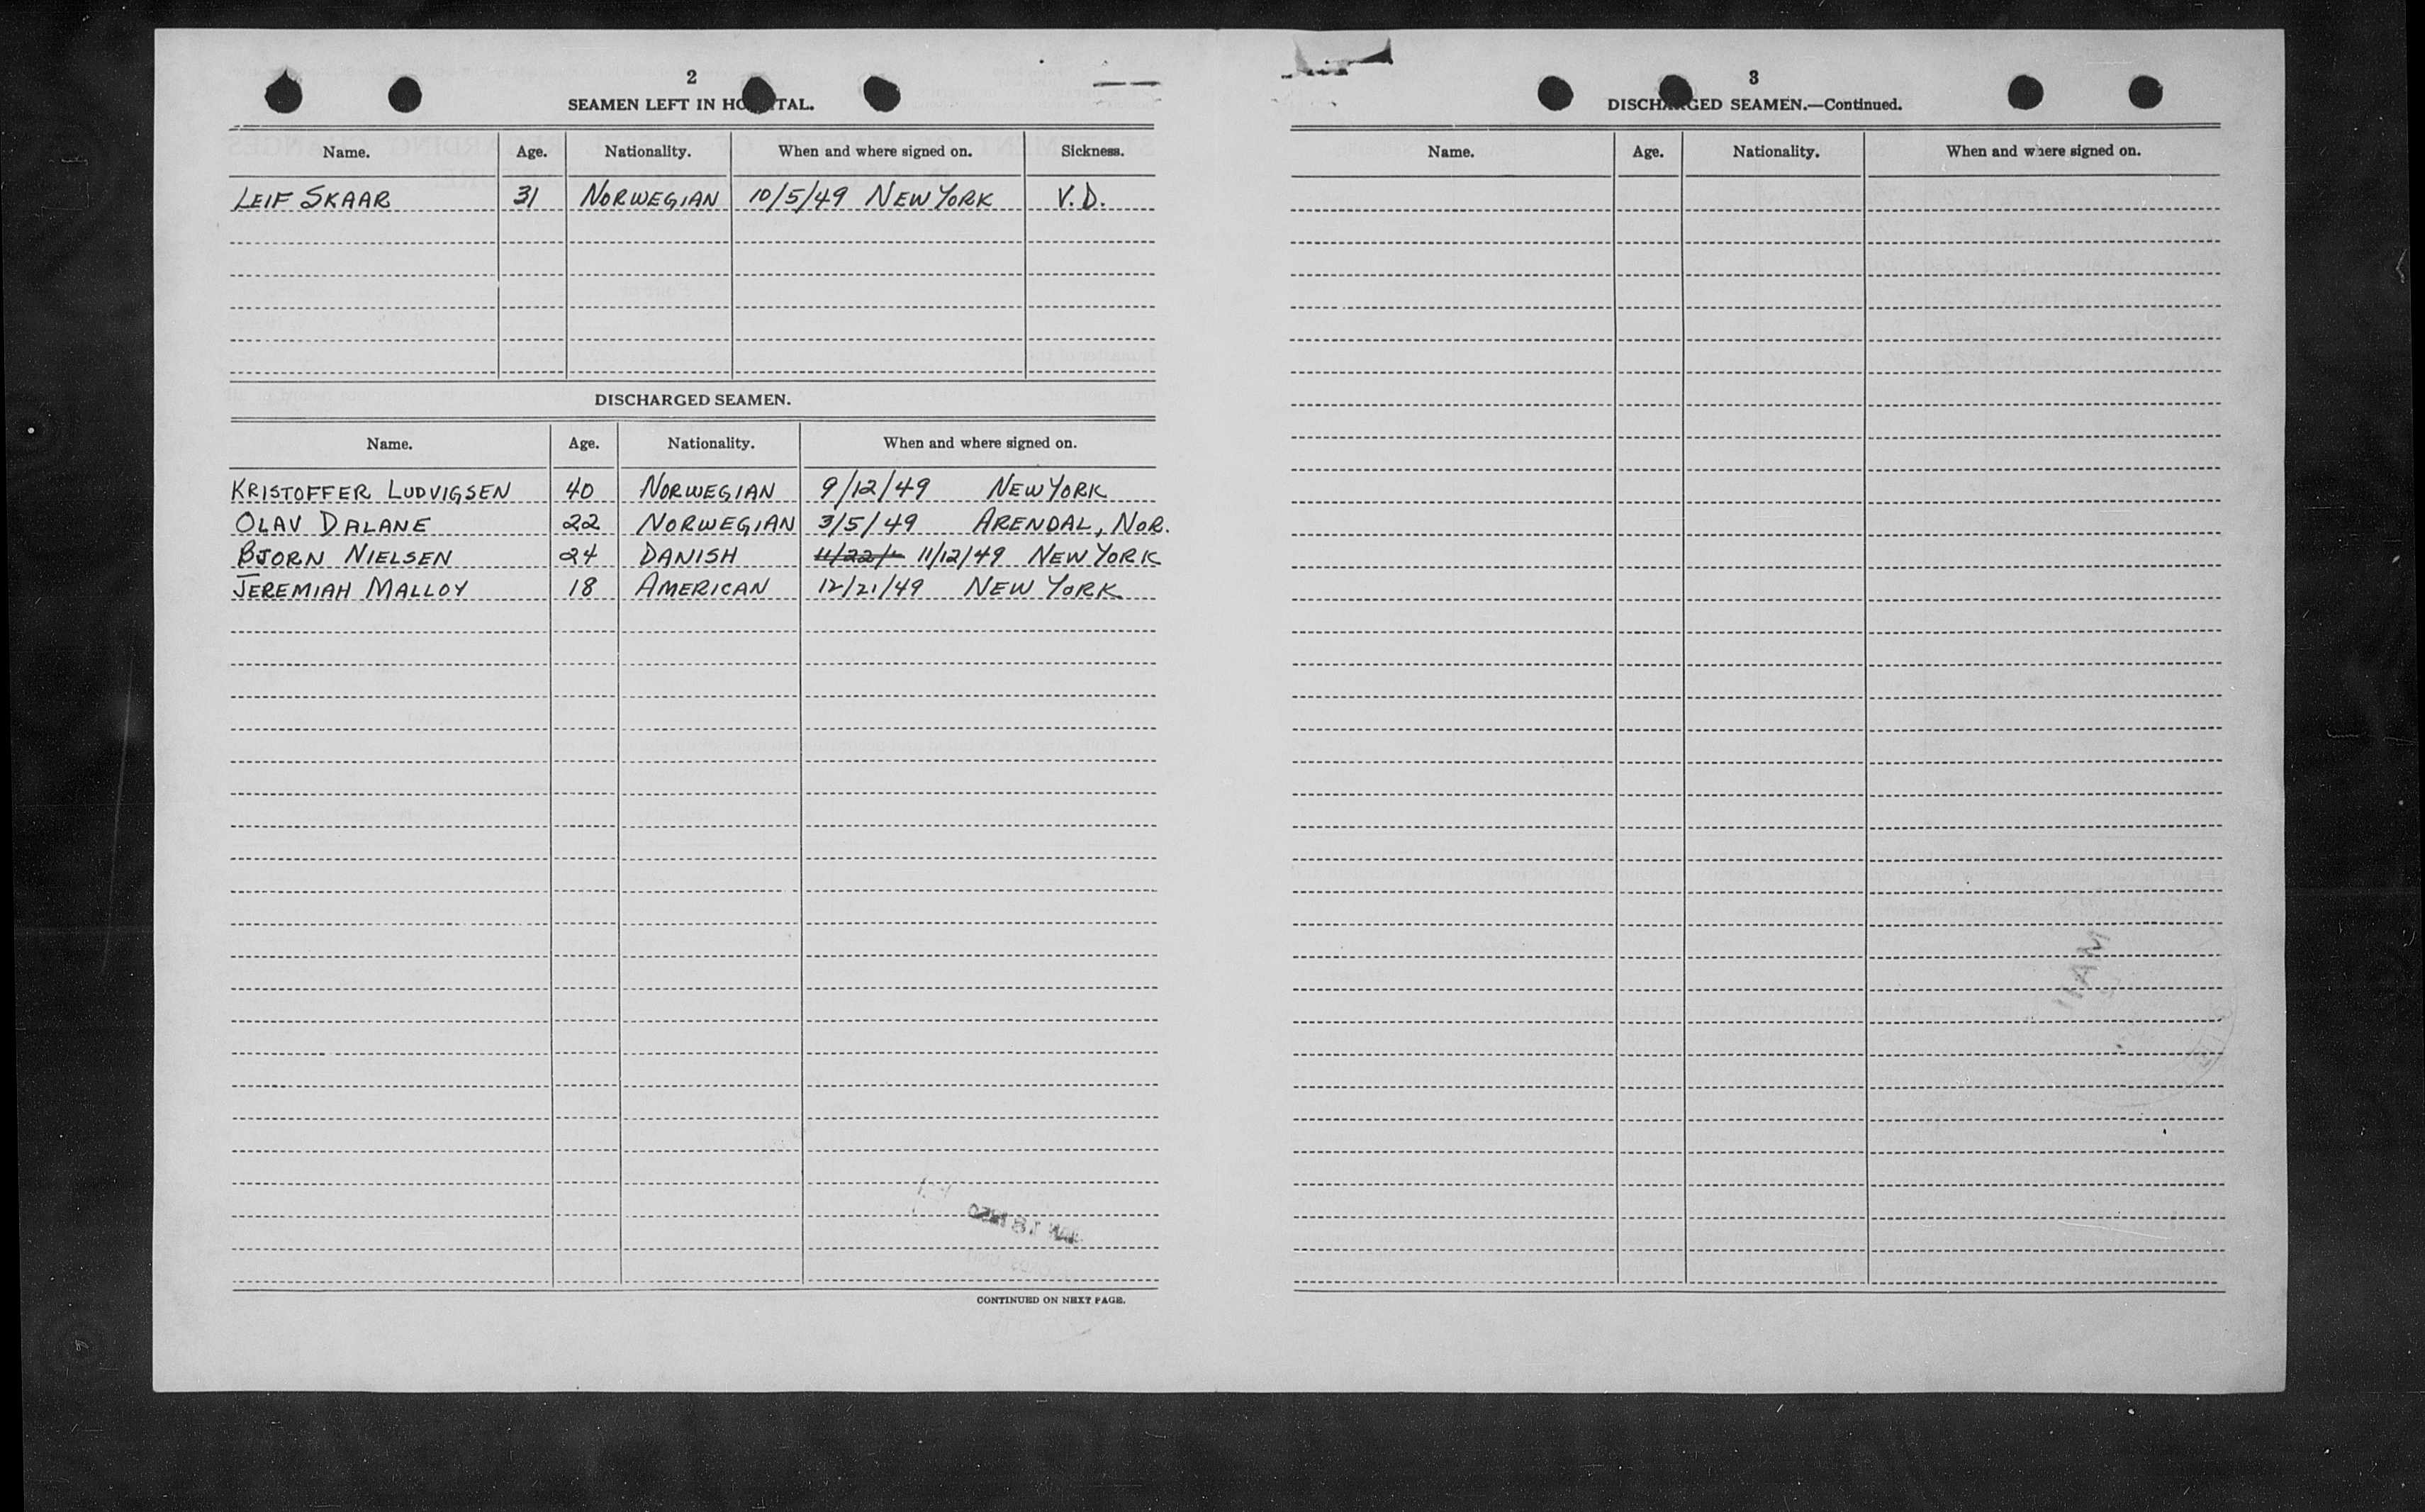 2
SEAMEN LEFT IN HO TAL.
Name. Age. Nationality. When and where signed on. Sickness.
LEIF SKAAR 31 NORWEGIAN 10/5/49 NEW YORK V.D.
DISCHARGED SEAMEN.
Name. Age. Nationality. When and where signed on.
KRISTOFFER LUDVIGSEN 40 NORWEGIAN 9/12/49 NEW YORK
OLAV DALANE 22 NORWEGIAN 3/5/49 ARENDAL, NOR.
BJORN NIELSEN 24 DANISH 11/12/49 NEW YORK
JEREMIAH MALLOY 18 AMERICAN 12/21/49 NEW YORK
CONTINUED ON NEXT PAGE.
3
DISCHARGED SEAMEN.—Continued.
Name. Age. Nationality. When and where signed on.